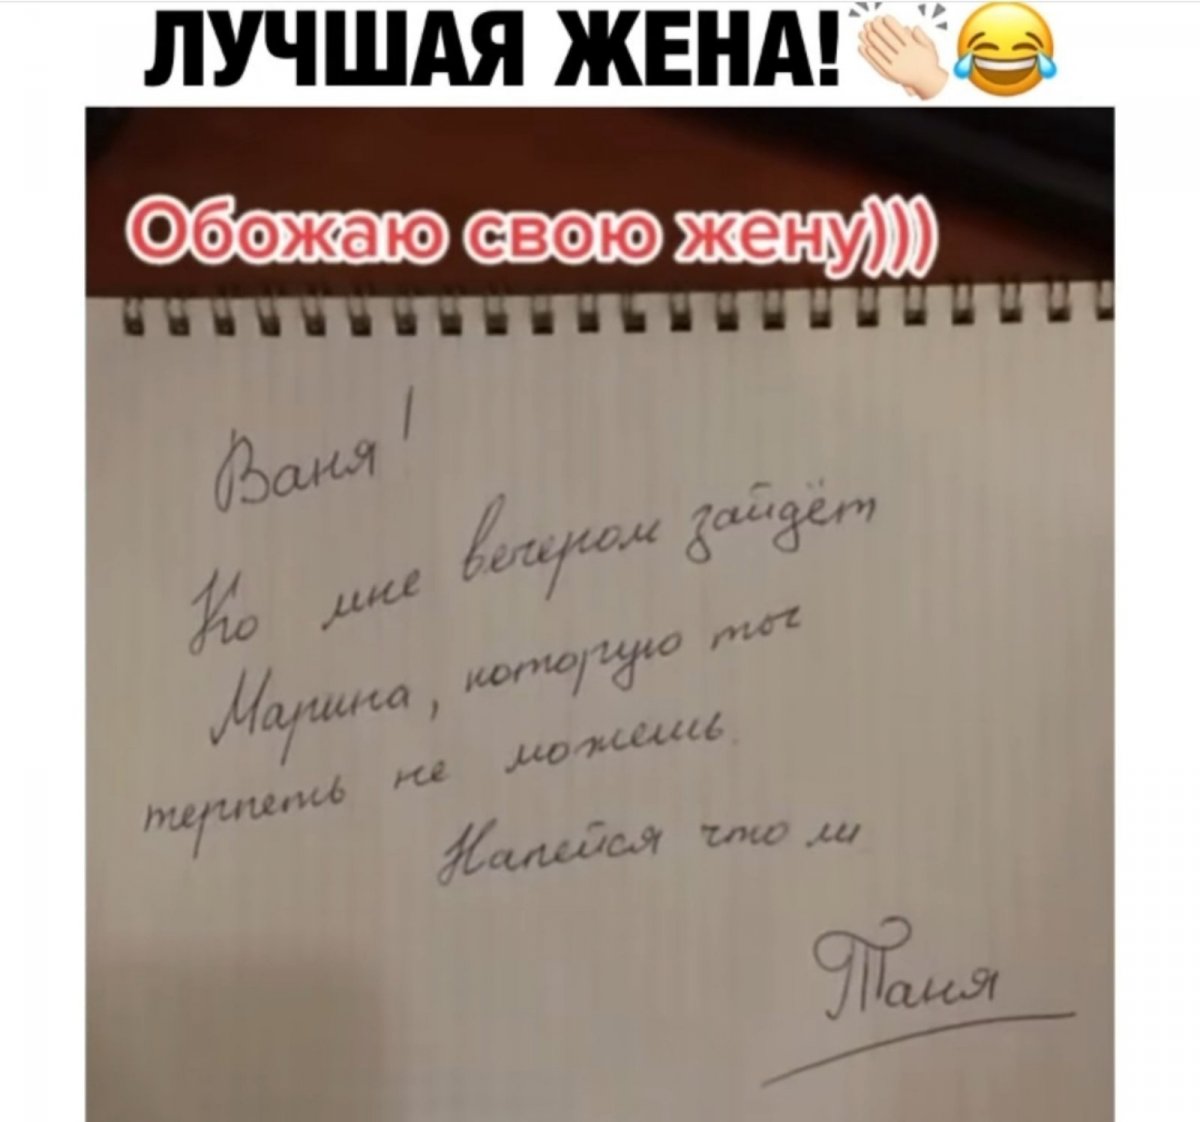 ЛУЧШАЯ ЖЕНА!👏🏻😂
Обожаю свою жену)))
Ваня!
Ко мне вечером зайдёт
Марина, которую ты
терпеть не можешь.
Напейся что ли
Таня